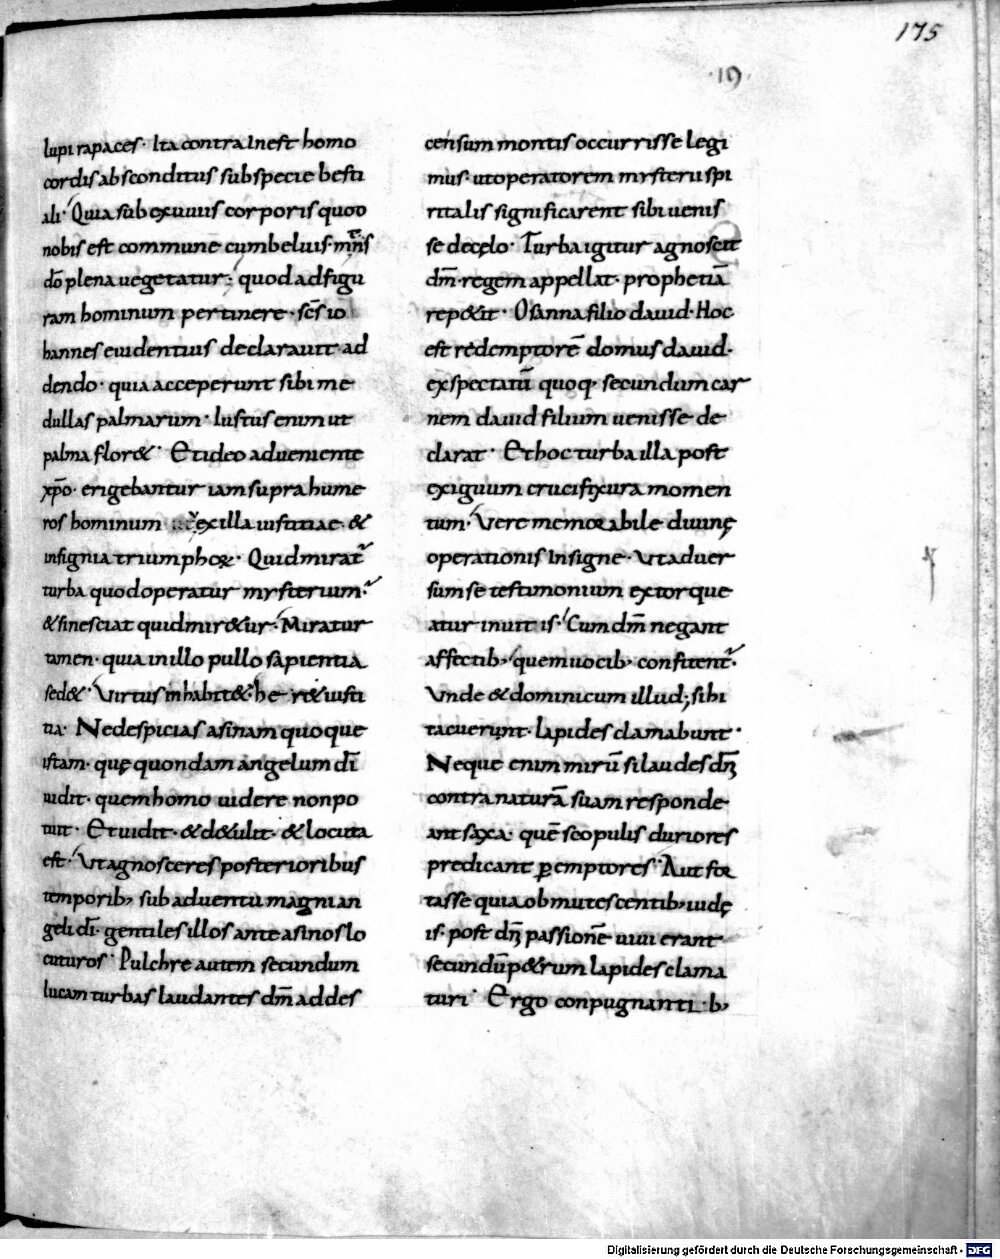 175
·19·
lupi rapaces· Ita contra Inest homo
cordis absconditus sub specie besti
ali· Quia sub exuuiis corporis quod
nobis est commune cum beluis· mens
dō plena uegetatur· quod ad figu
ram hominum pertinere· scs̄ io
hannes euidentius declarauit ad
dendo· quia acceperunt sibi me
dullas palmarum· Iustus enim ut
palma flor&· Et ideo adueniente
xp̄o· erigebantur iam supra hume
ros hominum uexilla iustitiae· &
insignia triumphor· Quid mirat̄
turba quod operatur mysterium·
& si nesciat quid mir&ur· Miratur
tamen· quia in illo pullo sapientia
sed&· Virtus inhabit&· he-r& iusti
tia· Ne despicias asinam quoque
istam· quę quondam angelum dī
uidit· quem homo uidere non po
tuit· Et uidit· & d&ulit· & locuta
est· Vt agnosceres posterioribus
temporib; sub aduentu magni an
geli dī· gentiles illos ante asinos lo
cuturos· Pulchre autem secundum
lucam turbas laudantes dn̄m ad des
censum montis occurrisse legi
mus· ut operatorem mysterii spi
ritalis significarent sibi uenis
se de cęlo· Turba igitur agnoscit
dm̄· regem appellat· prophetiā
rep&it· Osanna filio dauid· Hoc
est redemptorē domus dauid·
exspectatū quoq· secundum car
nem dauid filium uenisse de
clarat· Et hoc turba illa post
exiguum crucifixura momen
tum· Vere memorabile diuinę
operationis Insigne· Vt aduer
sum se testimonium extorque
atur inuitis· Cum dn̄m negant
affectib; quem uocib; confitent̄·
Vnde & dominicum illud; si hi
tacuerunt· lapides clamabunt·
Neque enim mirū si laudes dn̄i
contra naturā suam responde
ant saxa· quē scopulis duriores
predicant pemptores· Aut for
tasse quia obmutescentib; iudę
is· post dn̄i passionē uiui erant
secundū p&rum lapides clama
turi· Ergo conpugnanti·b;
Digitalisierung gefördert durch die Deutsche Forschungsgemeinschaft - DFG